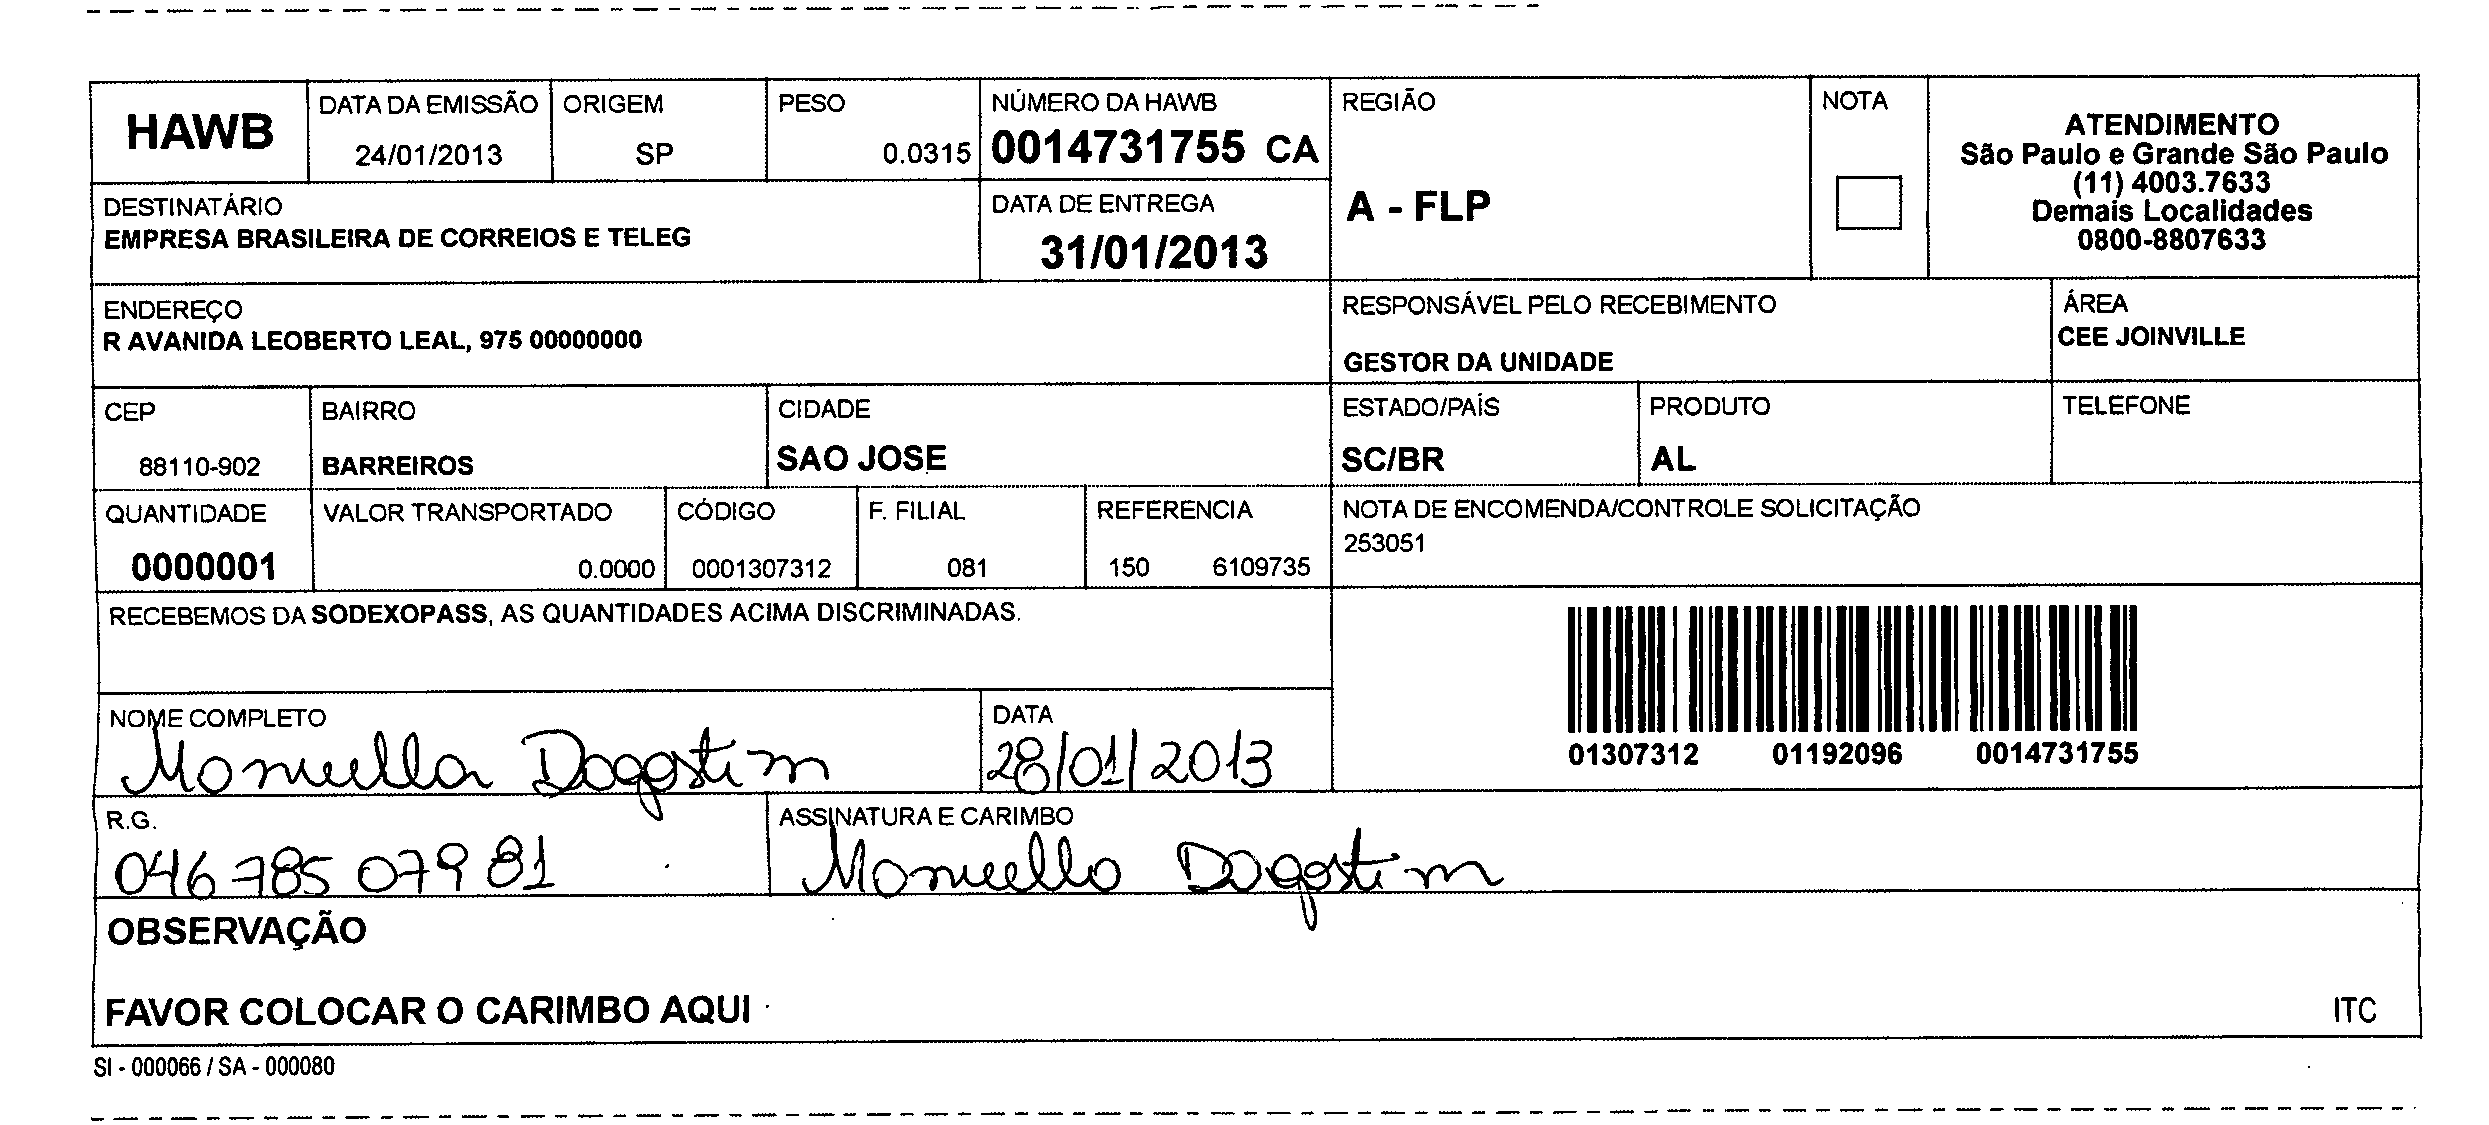 HAWB
DATA DA EMISSÃO
24/01/2013
ORIGEM
SP
PESO
0.0315
NÚMERO DA HAWB
0014731755 CA
REGIÃO
A - FLP
NOTA
ATENDIMENTO
São Paulo e Grande São Paulo
(11) 4003.7633
Demais Localidades
0800-8807633
DESTINATÁRIO
EMPRESA BRASILEIRA DE CORREIOS E TELEG
DATA DE ENTREGA
31/01/2013
ENDEREÇO
R AVANIDA LEOBERTO LEAL, 975 00000000
RESPONSÁVEL PELO RECEBIMENTO
GESTOR DA UNIDADE
ÁREA
CEE JOINVILLE
CEP
88110-902
BAIRRO
BARREIROS
CIDADE
SAO JOSE
ESTADO/PAÍS
SC/BR
PRODUTO
AL
TELEFONE
QUANTIDADE
0000001
VALOR TRANSPORTADO
0.0000
CÓDIGO
0001307312
F. FILIAL
081
REFERENCIA
150 6109735
NOTA DE ENCOMENDA/CONTROLE SOLICITAÇÃO
253051
RECEBEMOS DA SODEXOPASS, AS QUANTIDADES ACIMA DISCRIMINADAS.
01307312 01192096 0014731755
NOME COMPLETO
Manuella Dagostim
DATA
28/01/2013
R.G.
046 785 079 81
ASSINATURA E CARIMBO
Manuella Dagostim
OBSERVAÇÃO
FAVOR COLOCAR O CARIMBO AQUI
ITC
SI - 000066 / SA - 000080